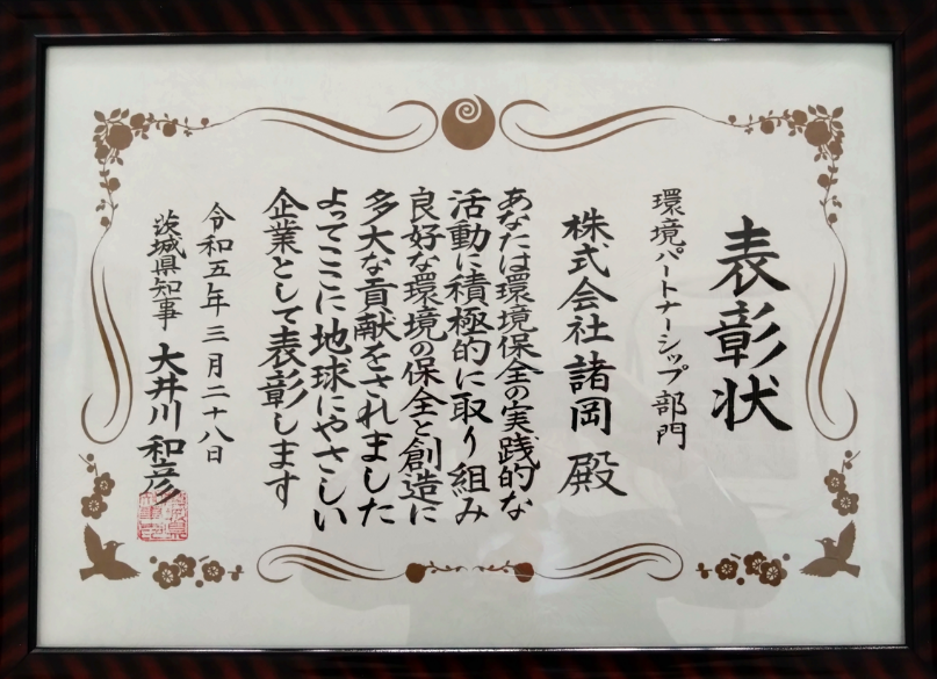 表彰状
環境パートナーシップ部門
株式会社 諸岡 殿
あなたは環境保全の実践的な
活動に積極的に取り組み
良好な環境の保全と創造に
多大な貢献をされました
よってここに地球にやさしい
企業として表彰します
令和五年三月二十八日
茨城県知事 大井川 和彦